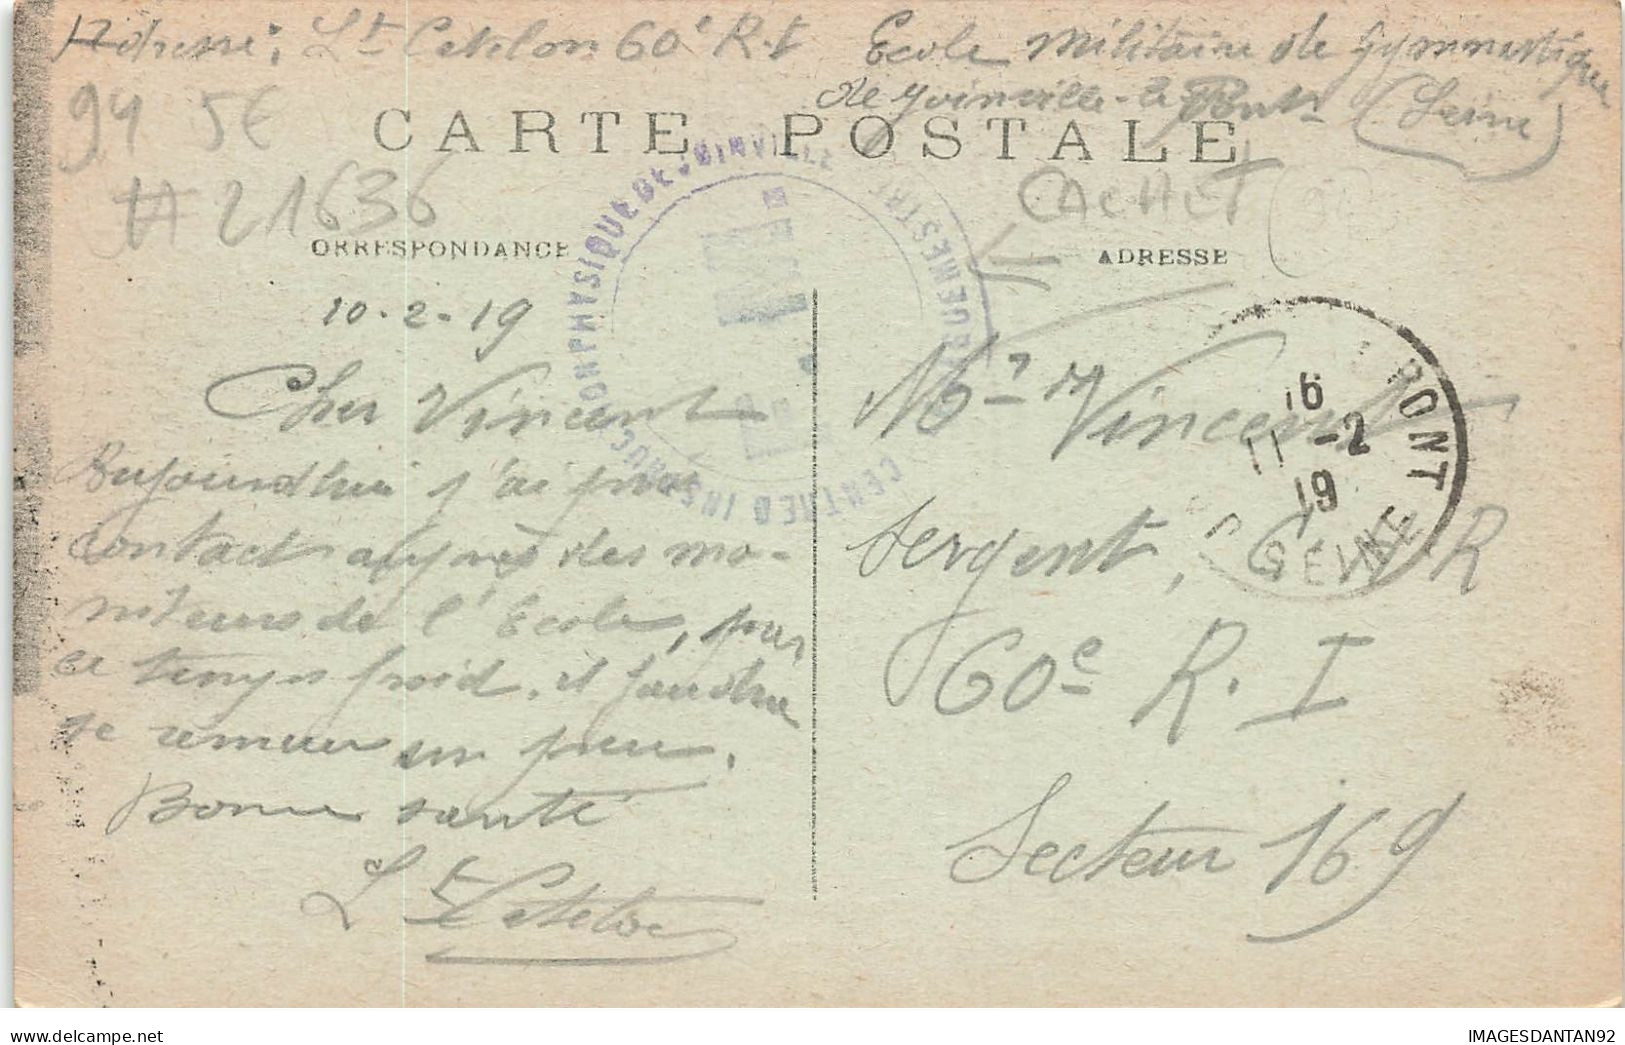 Adresse : Lt Catelon 60e R.I Ecole militaire de gymnastique
de Joinville-le Pont (Seine)
94 5€
CARTE POSTALE
# 21636
CACHET
ORRESPONDANCE
ADRESSE
CENTRE D'INSTRUCTION PHYSIQUE DE JOINVILLE
10-2-19
Cher Vincent
Aujourd'hui j'ai pris
contact auprès des mo-
niteurs de l'Ecole, par
ce temps froid. il faudra
se remuer un peu.
Bonne santé
Lt Catelon
Mr Vincent
Sergent, C. H. R
60e R. I
Secteur 169
PONT
16
11 -2
19
SEINE
IMAGESDANTAN92